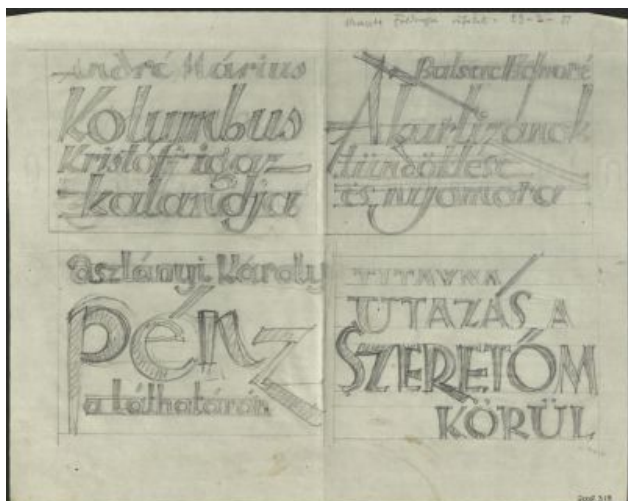 André Márius
Kolumbus
Kristóf igaz
kalandja
Balzac Honoré
A kurtizánok
tündöklése
és nyomora
aszlányi Károly
pénz
a láthatáron
TITAYNA
UTAZÁS A
SZERETŐM
KÖRÜL